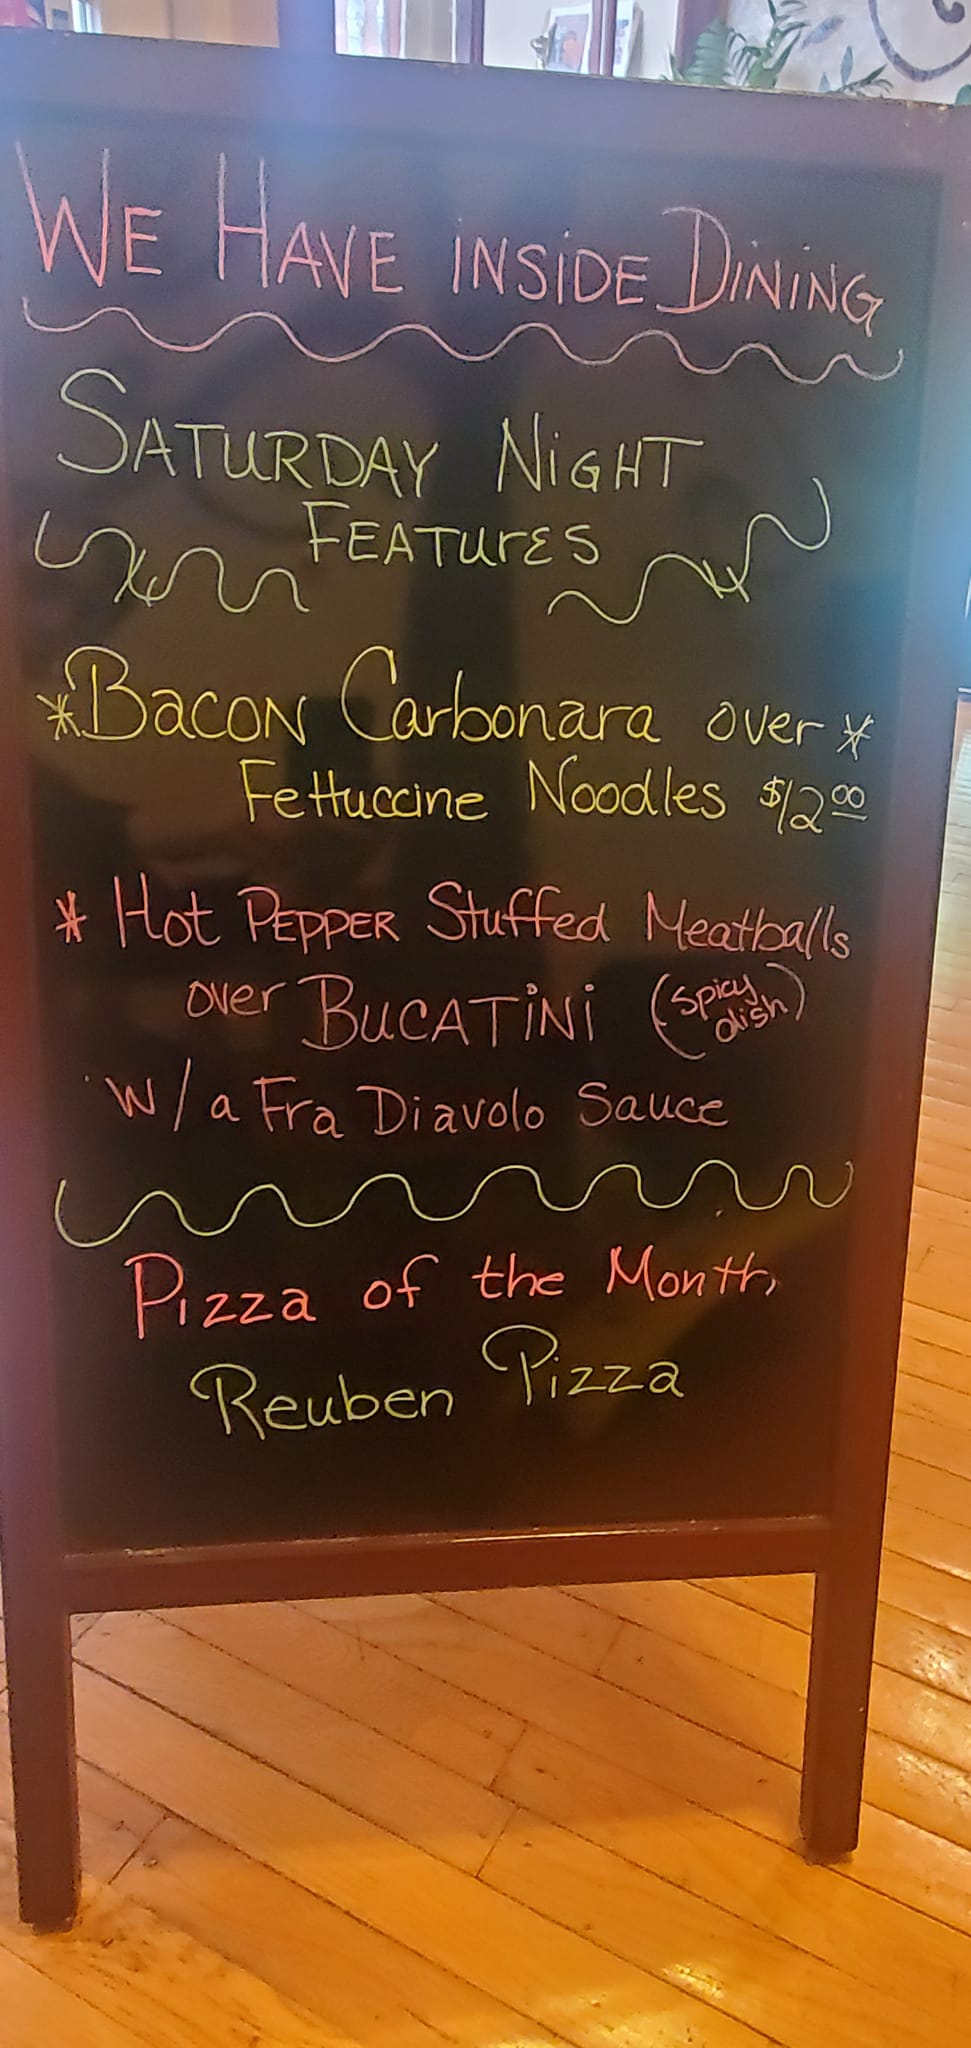 WE HAVE INSIDE DINING
SATURDAY NIGHT
FEATURES
*BACON Carbonara over*
Fettuccine Noodles $12.00
* Hot PEPPER Stuffed Meatballs
over BUCATINI (Spicy dish)
w/a Fra Diavolo Sauce
Pizza of the Month,
Reuben Pizza